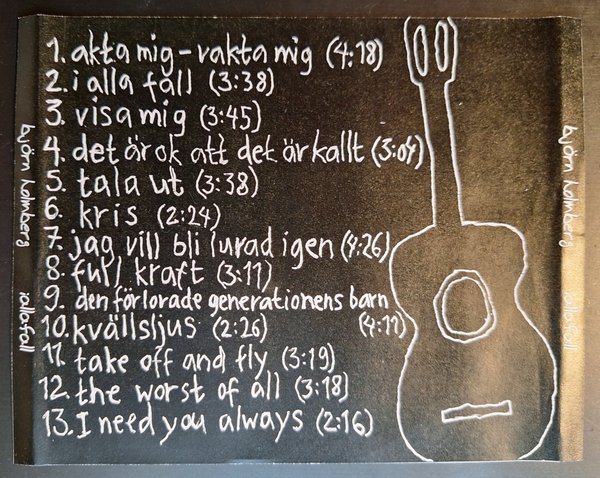 1. akta mig - vakta mig (4:18)
2. i alla fall (3:38)
3. visa mig (3:45)
4. det är ok att det är kallt (3:04)
5. tala ut (3:38)
6. kris (2:24)
7. jag vill bli lurad igen (4:26)
8. full kraft (3:11)
9. den förlorade generationens barn (4:19)
10. kvällsljus (2:26)
11. take off and fly (3:19)
12. the worst of all (3:18)
13. I need you always (2:16)
björn holmberg i alla fall
björn holmberg i alla fall